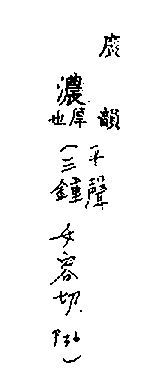 廣韻
濃厚也(平聲三鍾女容切.P36)